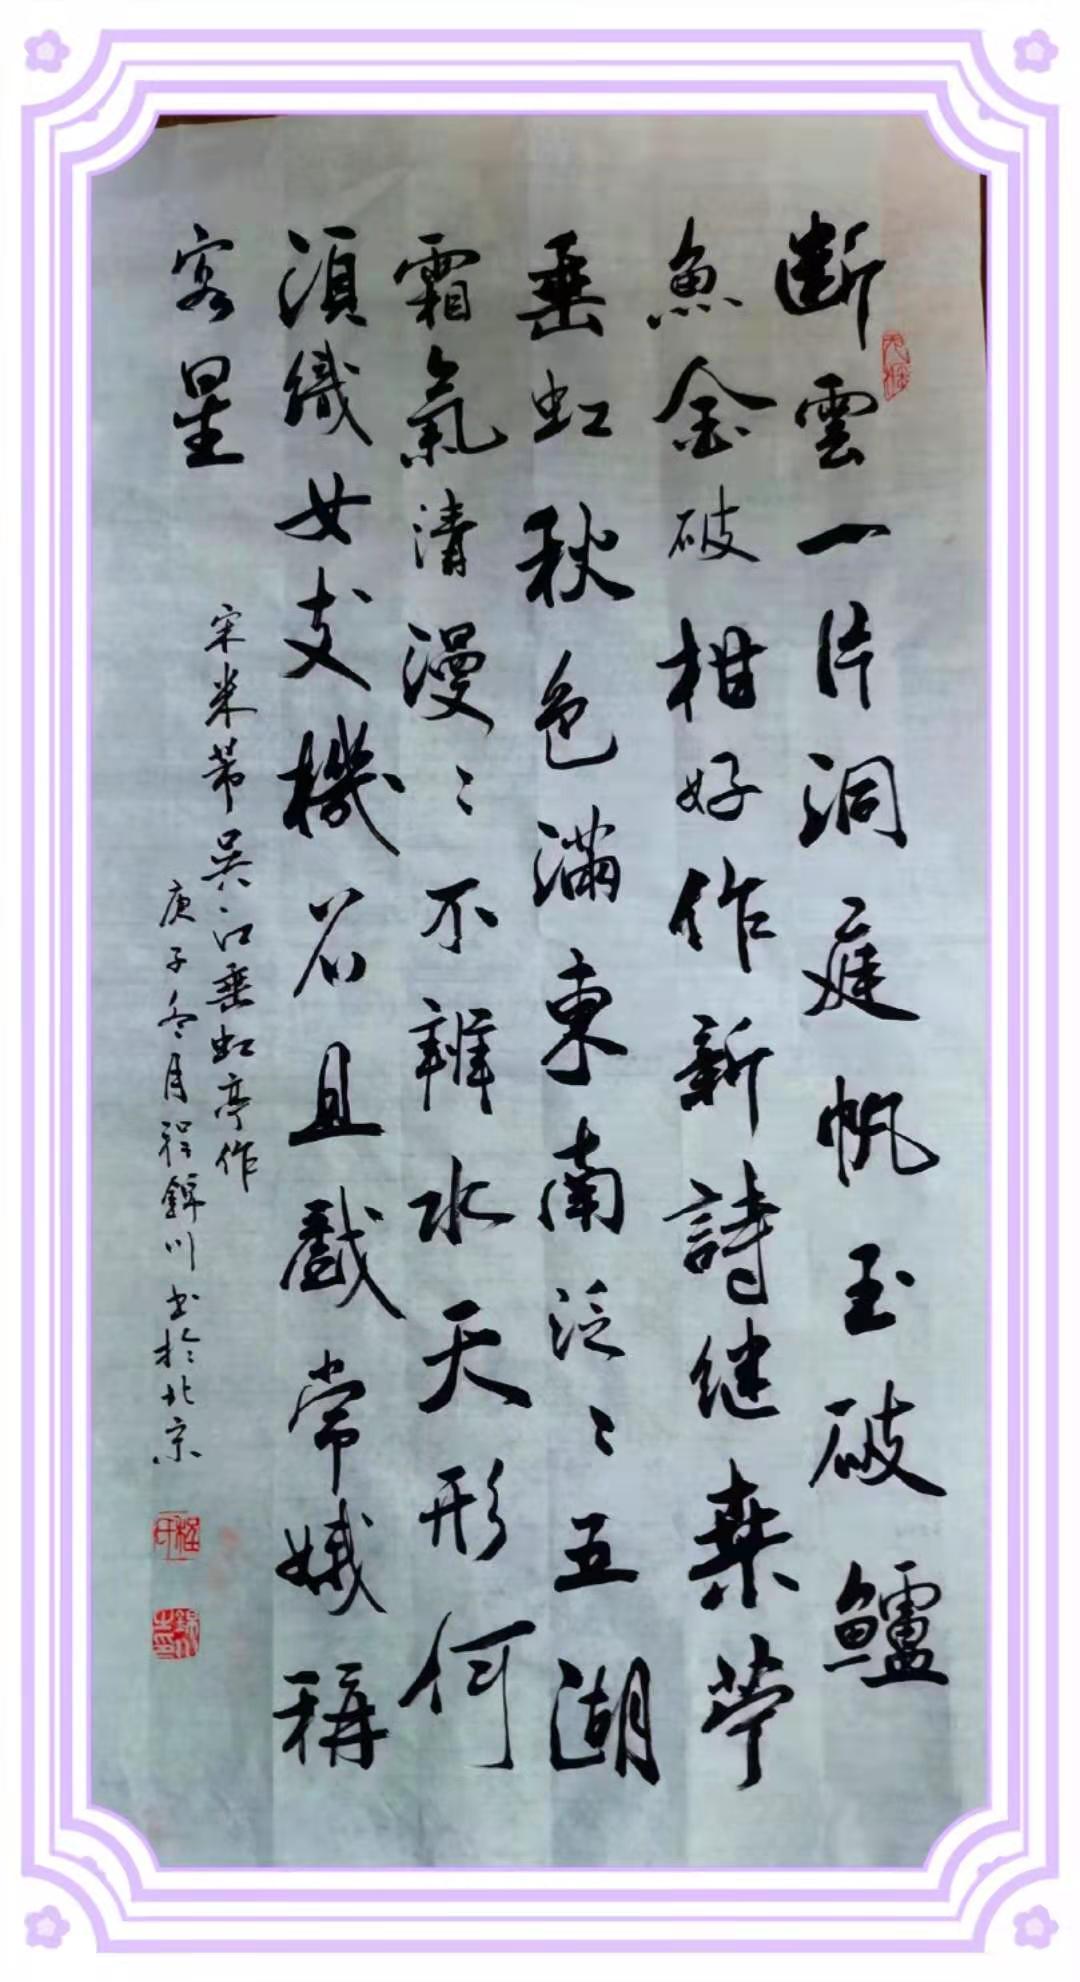 斷雲一片洞庭帆玉破鱸
魚金破柑好作新詩繼桑苧
垂虹秋色滿東南泛〻五湖
霜氣清漫〻不辨水天形何
須織女支機石且戲常娥稱
客星
宋米芾吳江垂虹亭作
庚子冬月程錦川书於北京